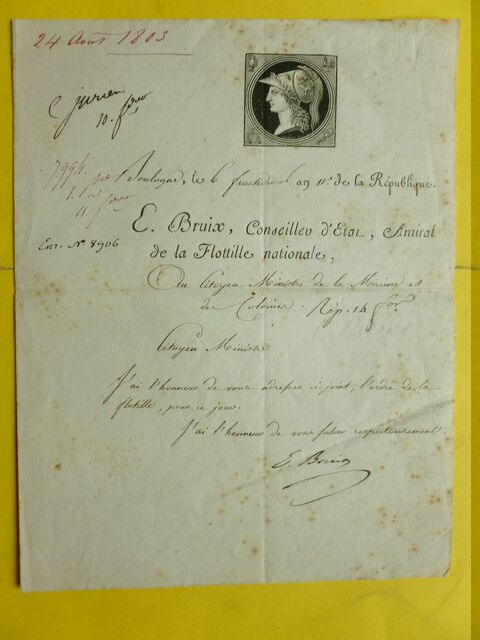 24 Août 1803
jurien
10. fror
799h.
1. pe
11 fror
Boulogne, le 6 fructidor an 11e de la République.
Enr. N° 8906.
E. Bruix, Conseiller d'Etat, Amiral
de la Flottille nationale,
Au Citoyen Ministre de la Marine et
des Colonies. Rép. 14 fror
Citoyen Ministre
J'ai l'honneur de vous adresser ci-joint, l'ordre de la
flotille, pour ce jour.
J'ai l'honneur de vous saluer respectueusement.
E. Bruix